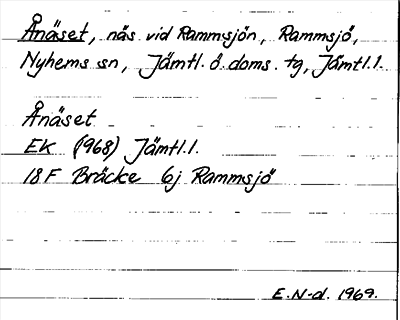 Ånäset, näs vid Rammsjön, Rammsjö,
Nyhems sn, Jämtl. ö. doms. tg, Jämtl. l.
Ånäset
EK (1968) Jämtl. l.
18F Bräcke 6j Rammsjö
E. N-d. 1969.